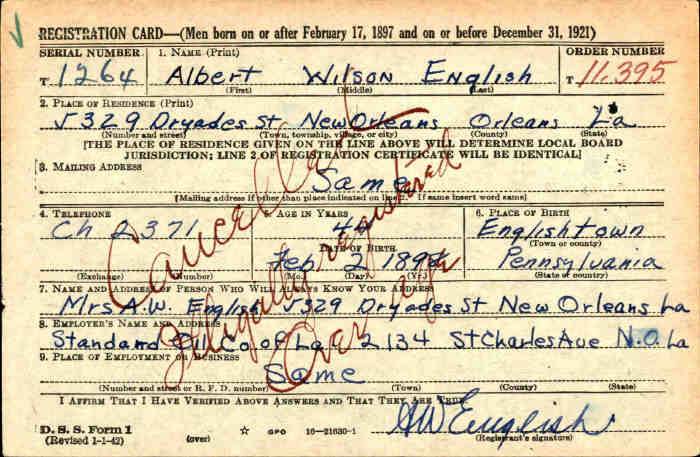 REGISTRATION CARD—(Men born on or after February 17, 1897 and on or before December 31, 1921)
SERIAL NUMBER 1. NAME (Print) ORDER NUMBER
T 1264 Albert Wilson English T 11,395
(First) (Middle) (Last)
2. PLACE OF RESIDENCE (Print)
5329 Dryades St New Orleans Orleans La
(Number and street) (Town, township, village, or city) (County) (State)
[THE PLACE OF RESIDENCE GIVEN ON THE LINE ABOVE WILL DETERMINE LOCAL BOARD
JURISDICTION; LINE 2 OF REGISTRATION CERTIFICATE WILL BE IDENTICAL]
3. MAILING ADDRESS
Same
[Mailing address if other than place indicated on line 2. If same insert word same]
4. TELEPHONE 5. AGE IN YEARS 6. PLACE OF BIRTH
Ch 2371 Englishtown
(Town or county)
DATE OF BIRTH
Feb 2 Pennsylvania
(Exchange) (Number) (Mo.) (Day) (Yr.) (State or country)
7. NAME AND ADDRESS OF PERSON WHO WILL ALWAYS KNOW YOUR ADDRESS
Mrs A.W. English 5329 Dryades St New Orleans La
8. EMPLOYER'S NAME AND ADDRESS
Standard Oil Co of La 2134 St Charles Ave N.O. La
9. PLACE OF EMPLOYMENT OR BUSINESS
Same
(Number and street or R. F. D. number) (Town) (County) (State)
I AFFIRM THAT I HAVE VERIFIED ABOVE ANSWERS AND THAT THEY ARE TRUE.
AW English
D. S. S. Form 1
(Revised 1-1-42) (over) ☆ GPO 16—21630-1 (Registrant's signature)
Cancelled
Illegally registered
Over age